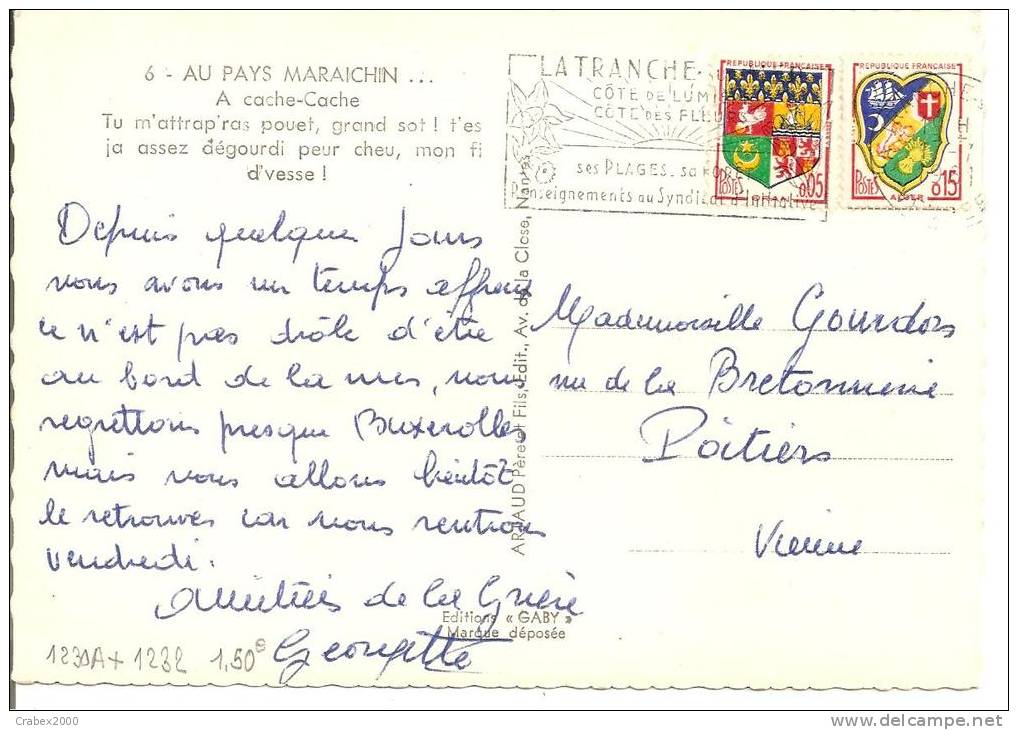 6 - AU PAYS MARAICHIN ...
A cache-Cache
Tu m'attrap'ras pouet, grand sot ! t'es
ja assez dégourdi peur cheu, mon fi
d'vesse !
LA TRANCHE
CÔTE DE LUMI
CÔTE DES FLEURS
ses PLAGES. sa
Renseignements au Syndicat d'Initiative
REPUBLIQUE FRANÇAISE
POSTES 0,05
REPUBLIQUE FRANÇAISE
POSTES 0,15
ALGER
Depuis quelques jours
nous avons un temps affreux
ce n'est pas drôle d'être
au bord de la mer, nous
regrettons presque Buxerolles
mais nous allons bientôt
le retrouver car nous rentrons
vendredi.
Amitiés de la Grière
Georgette
ARNAUD Père et Fils, Edit., Av. de la Close, Nantes
Mademoiselle Gourdon
rue de la Bretonnerie
Poitiers
Vienne
Editions « GABY »
Marque déposée
1230A + 1232 1,50 €
Crabex2000
www.delcampe.net